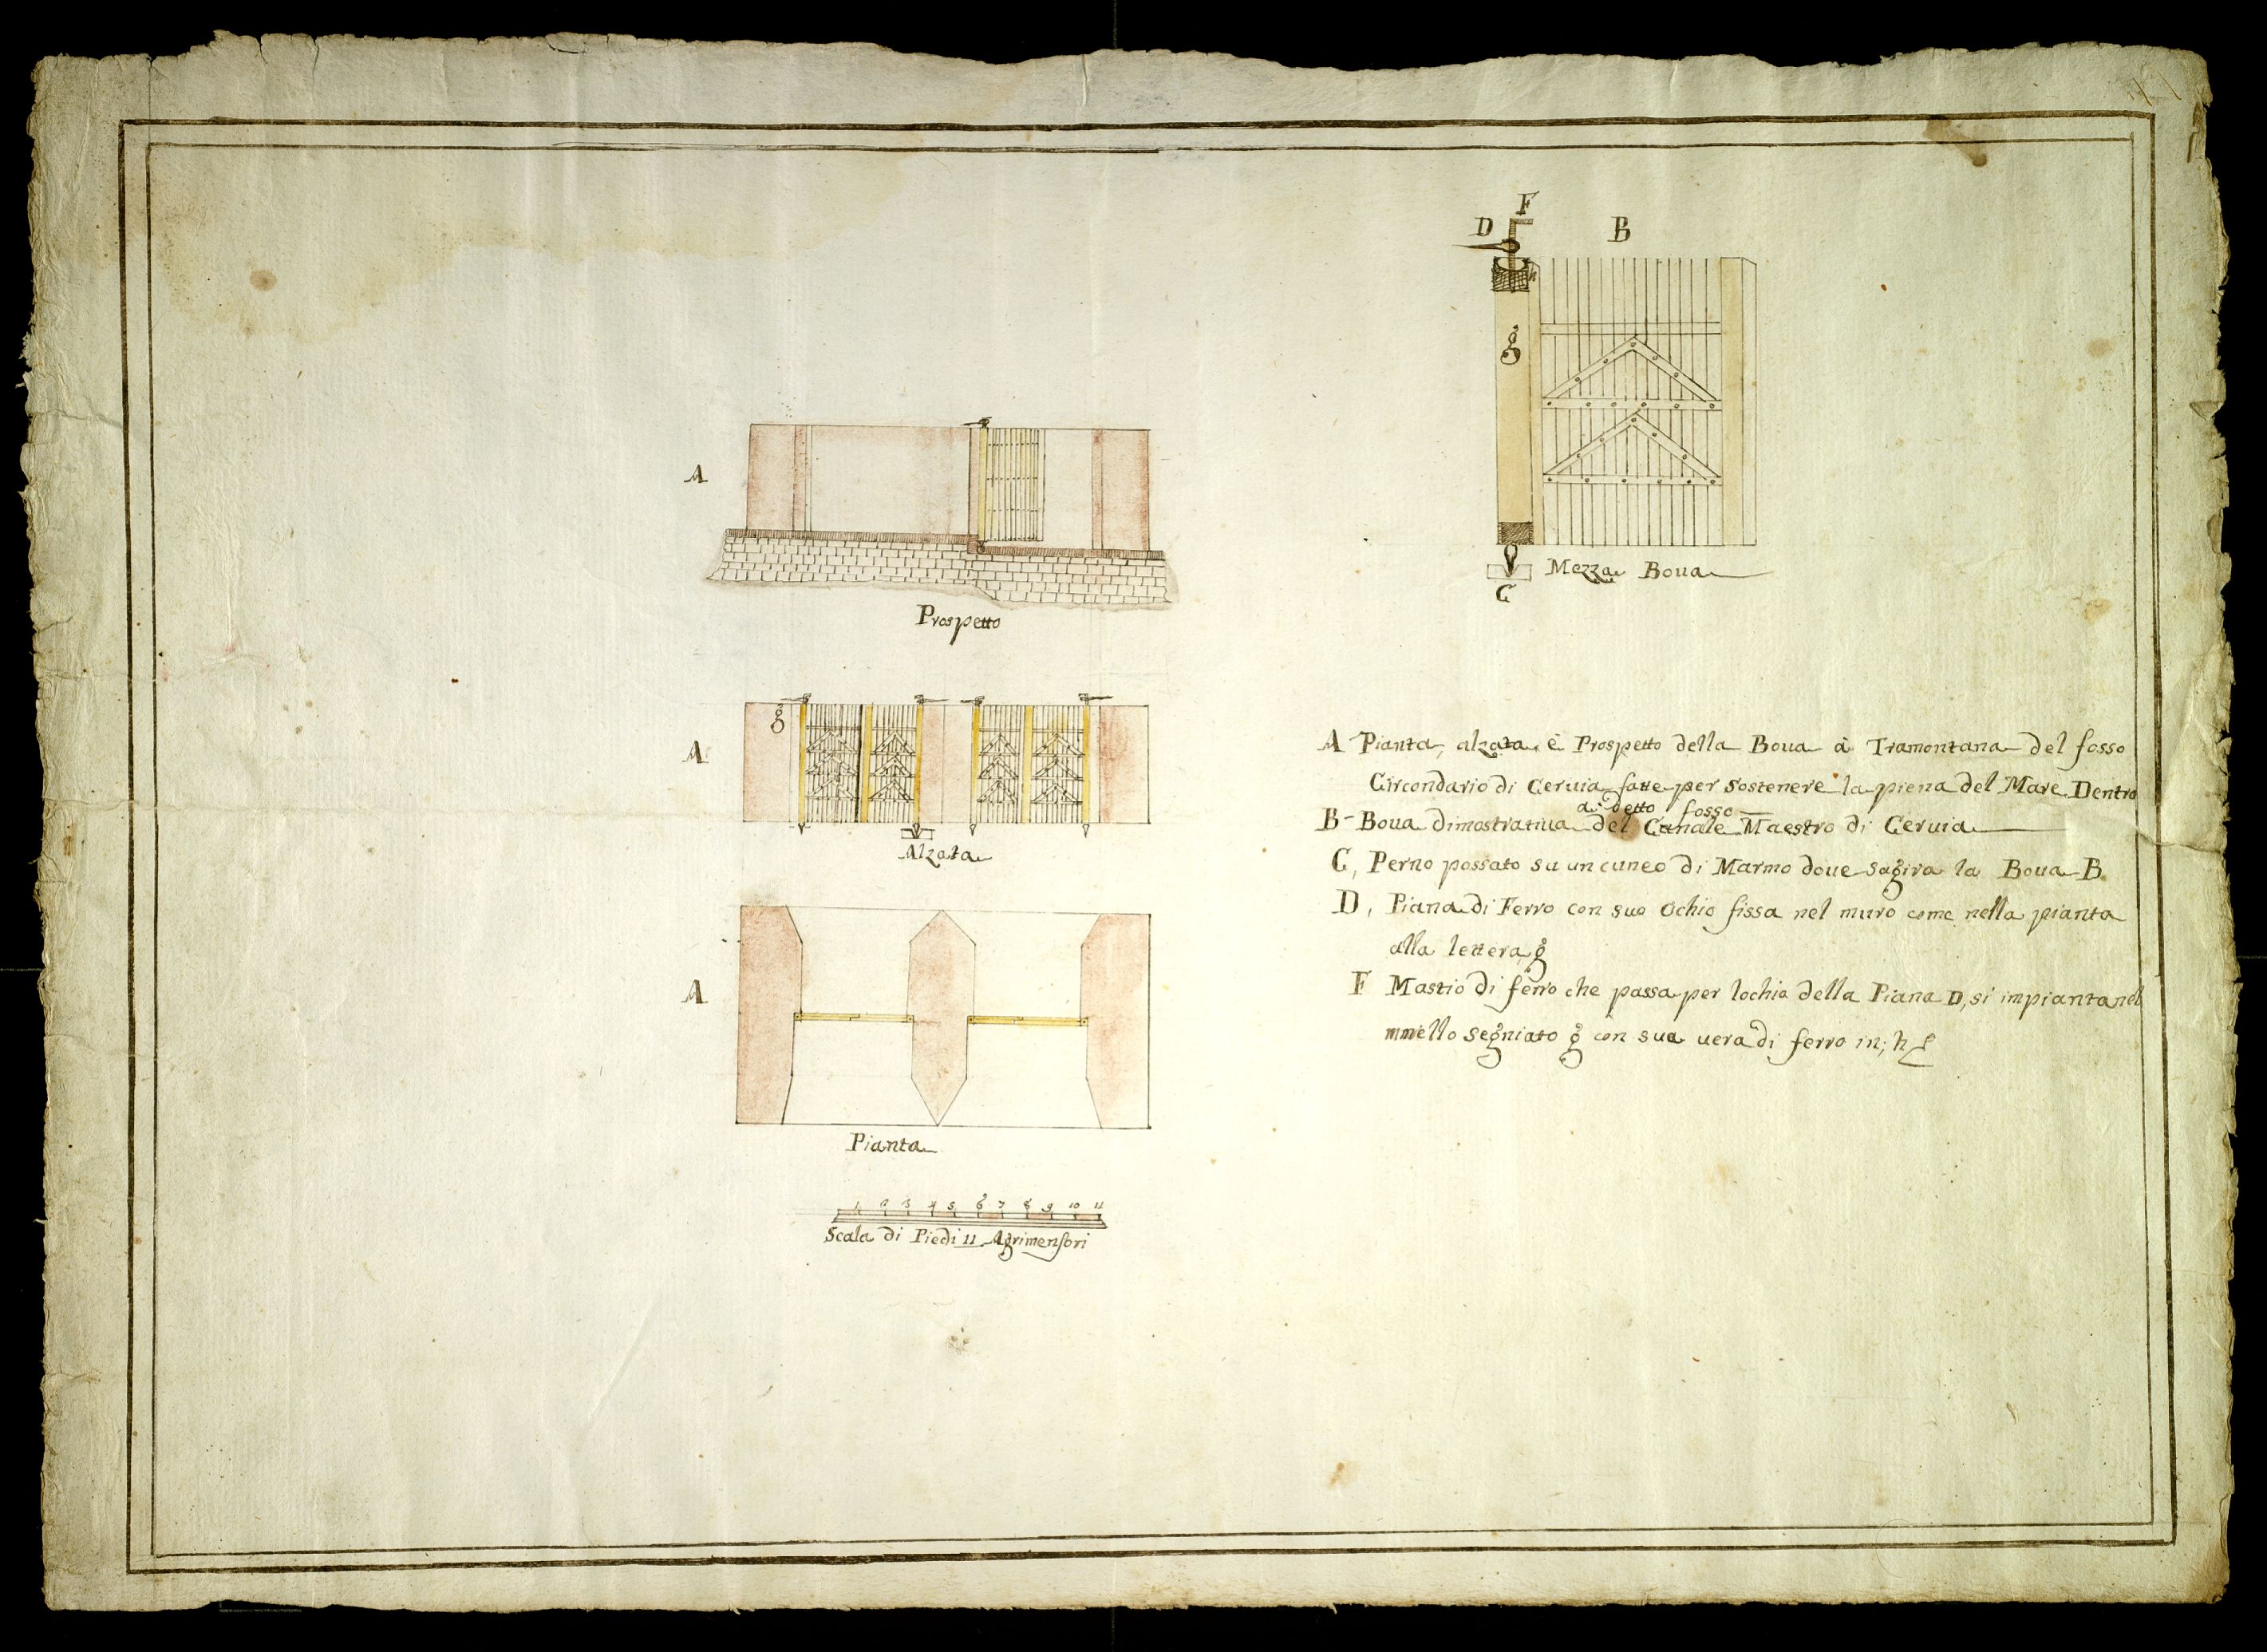 F
D
B
h
g
Mezza Boua
C
A
Prospetto
g
A
Alzata
A
Pianta
1 2 3 4 5 6 7 8 9 10 11
Scala di Piedi 11 Agrimensori
A Pianta, alzata, è Prospetto della Boua à Tramontana del fosso
Circondario di Ceruia fatte per Sostenere la piena del Mare Dentro
a detto fosso
B- Boua dimostratiua del Canale Maestro di Ceruia
C, Perno possato su un cuneo di Marmo doue sagira la Boua B
D, Piana di Ferro con suo Ochio fissa nel muro come nella pianta
alla lettera g
F Mastio di ferro che passa per lochio della Piana D, si impianta nel
segniato g con sua uera di ferro in; h